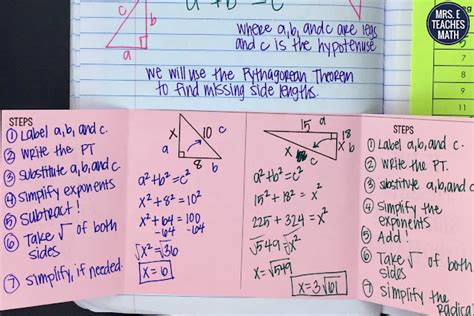 MRS. E
TEACHES
MATH
a² + b² = c²
c
b
a
where a, b, and c are legs
and c is the hypotenuse
we will use the Pythagorean Theorem
to find missing side lengths.
7
8
9
10
11
STEPS
① Label a, b, and c.
② write the PT
③ substitute a, b, and c
④ simplify exponents
⑤ Subtract!
⑥ Take √ of both
sides
⑦ simplify, if needed.
x 10 c
a
8 b
a²+b²=c²
x²+8²=10²
x²+64=100
-64 -64
√x²=√36
x=6
15 a
18
b
x c
a²+b²=c²
15²+18²=x²
225+324=x²
√549=√x²
x=√549
x=3√61
STEPS
① Label a, b, and c.
② write the PT.
③ substitute a, b, and c
④ Simplify the
exponents
⑤ Add!
⑥ Take √ of both
sides
⑦ simplify the
radical